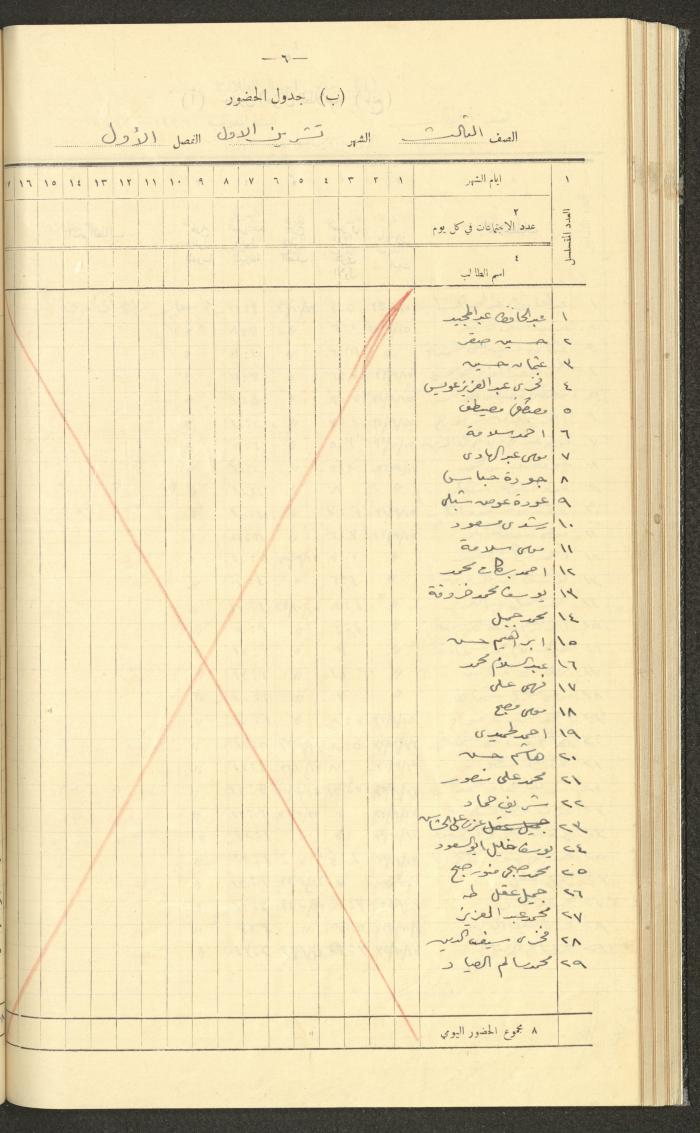 — ٦ —
(ب) جدول الحضور
الصف الثالث الشهر تشرين الاول الفصل الأول
١ ايام الشهر ١ ٢ ٣ ٤ ٥ ٦ ٧ ٨ ٩ ١٠ ١١ ١٢ ١٣ ١٤ ١٥ ١٦
٢
عدد الاجتماعات في كل يوم
العدد المتسلسل
٤
اسم الطالب
١ عبد الحافظ عبد المجيد
٢ حسين صقر
٣ عثمان حسين
٤ فخري عبد العزيز عويس
٥ مصطفى
٦ احمد سلامة
٧ موسى عبد الهادي
٨ جودة
٩ عودة عوض شبلي
١٠ رشدي مسعود
١١ موسى سلامة
١٢ احمد بركات محمد
١٣ يوسف محمد خروفة
١٤ محمد جميل
١٥ ابراهيم حسن
١٦ عبد السلام محمد
١٧ فهمي علي
١٨ موسى
١٩ احمد
٢٠ هاشم حسن
٢١ محمد علي منصور
٢٢ شريف حماد
٢٣ جميل عقل
٢٤ يوسف خليل ابو السعود
٢٥ محمد صبحي
٢٦ جميل عقل طه
٢٧ محمد عبد العزيز
٢٨ فخري سيف الدين
٢٩ محمد سالم الصياد
٨ مجموع الحضور اليومي